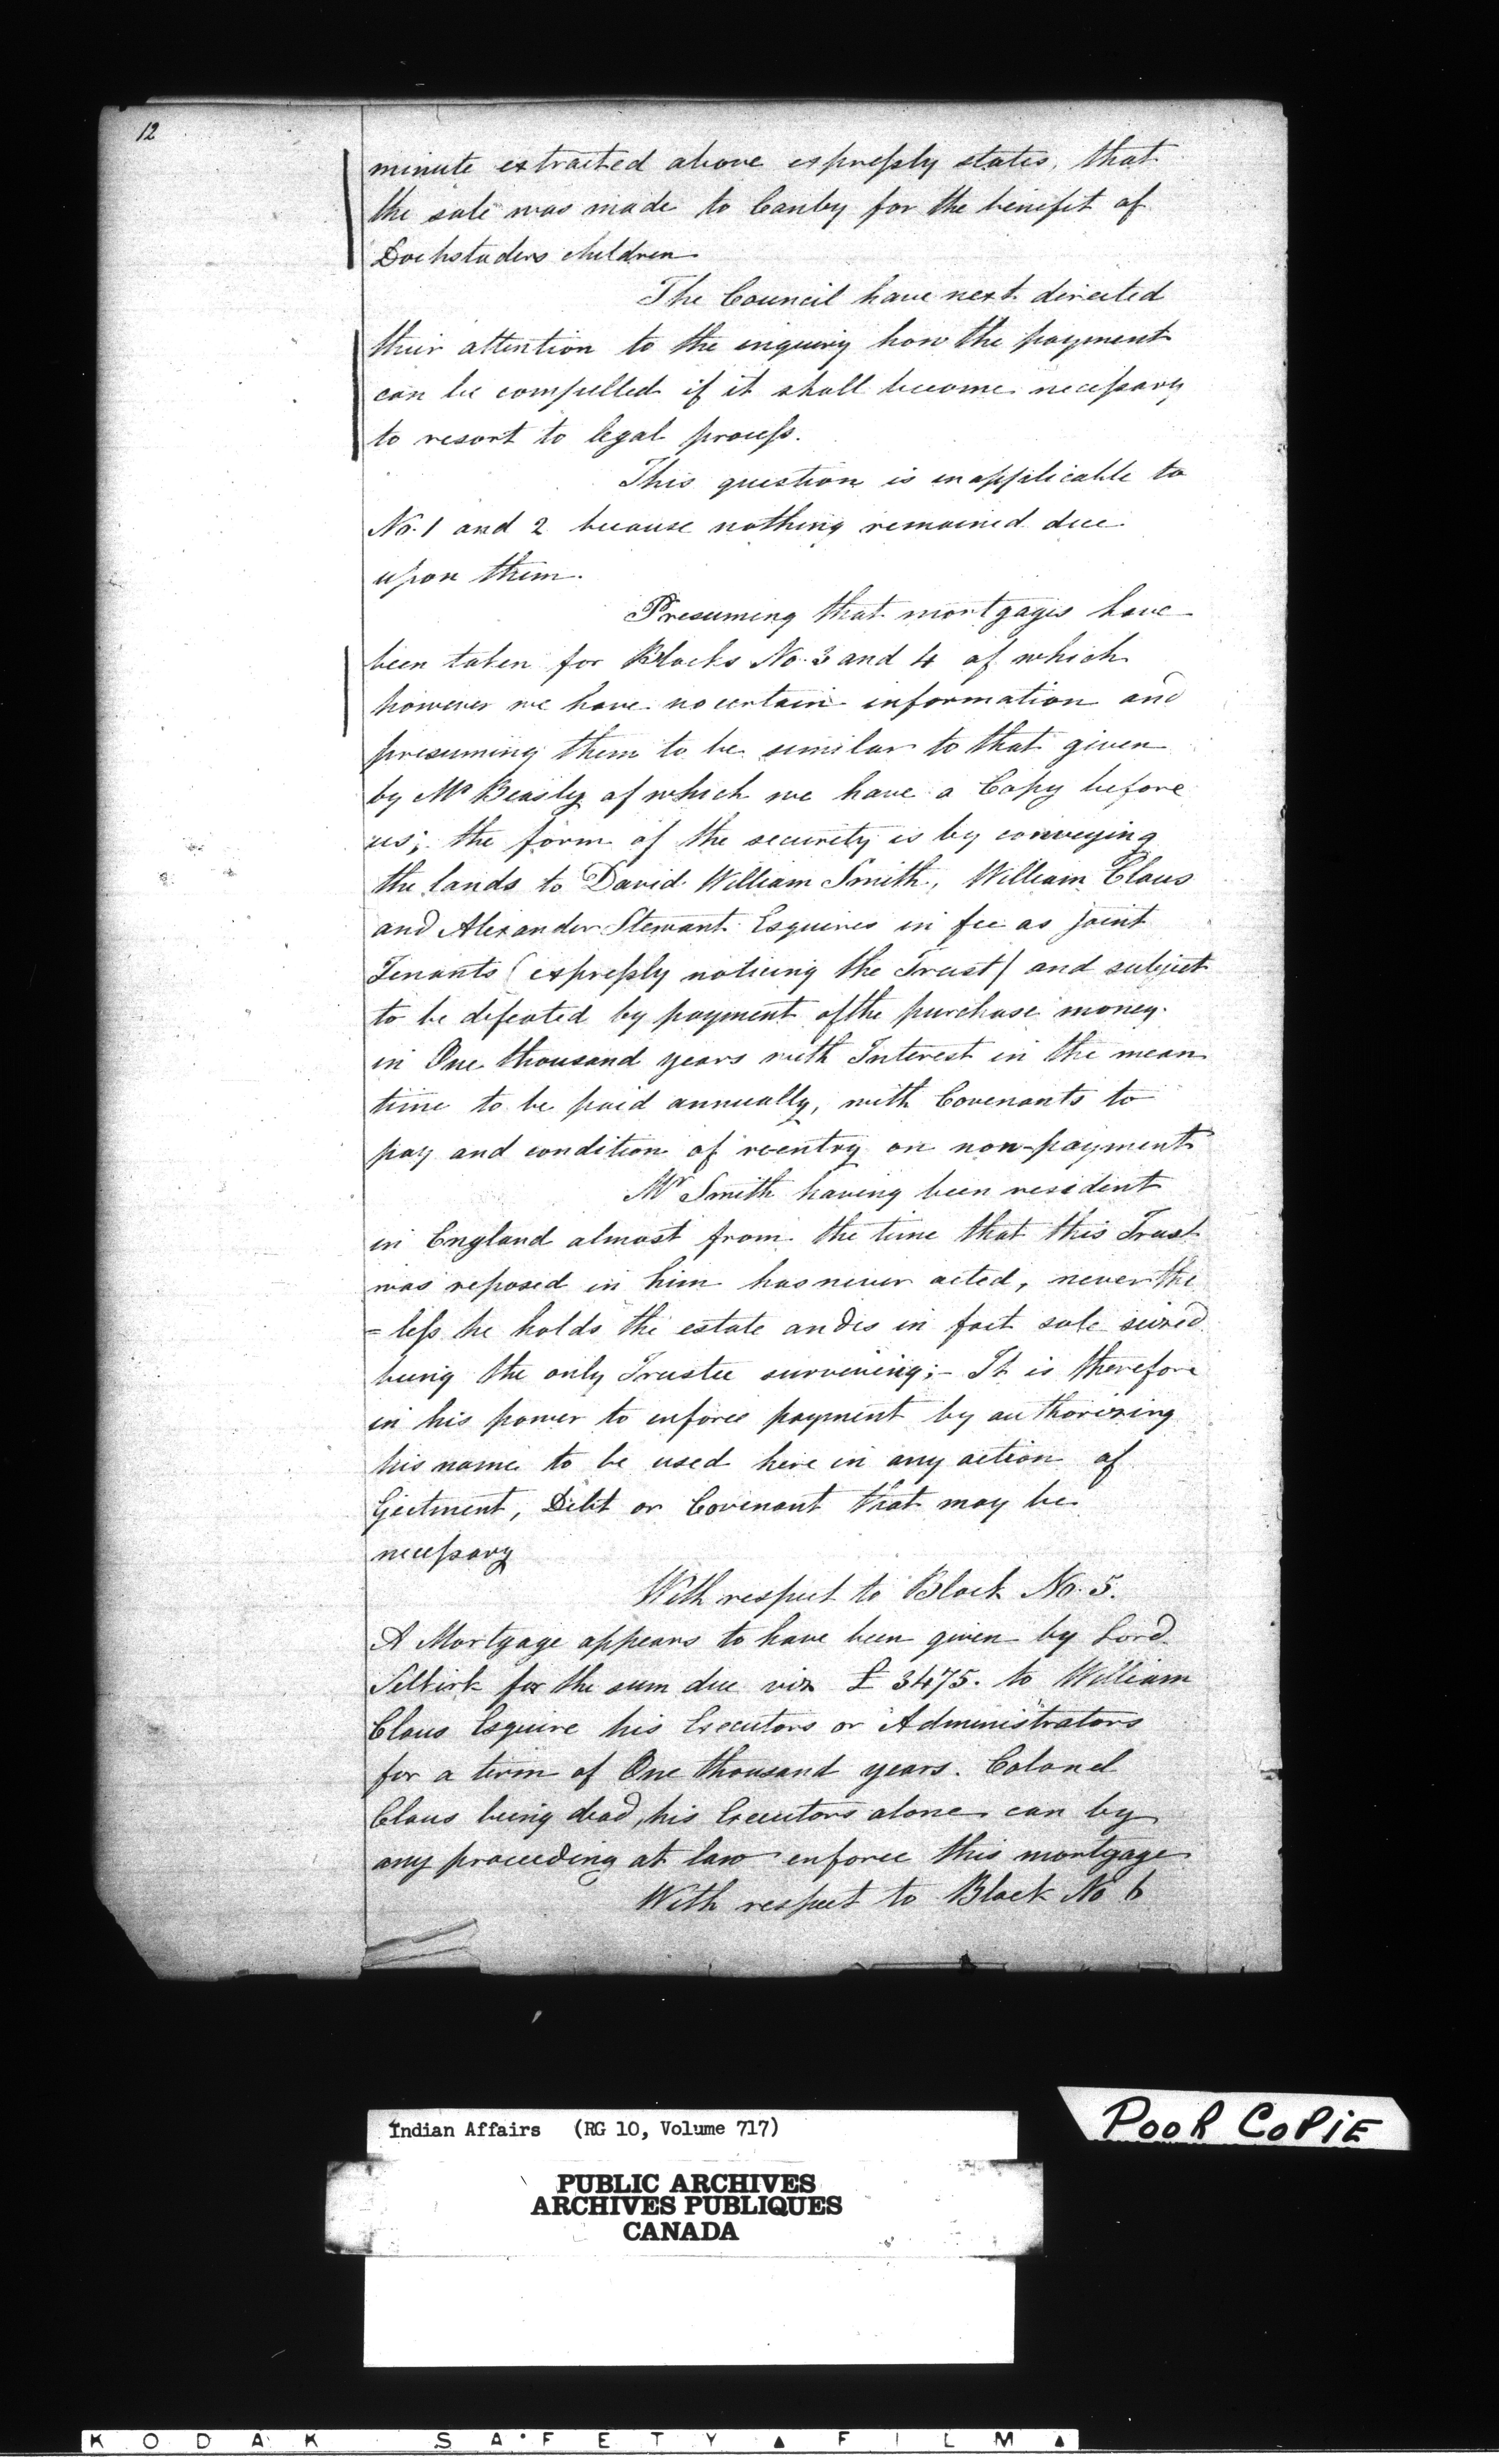 12
minute extracted above expressly states, that
the sale was made to Canby for the benefit of
Dochstaders children
The Council have next directed
their attention to the inquiry how the payment
can be compelled if it shall become necessary
to resort to legal process.
This question is inapplicable to
No. 1 and 2 because nothing remained due
upon them.
Presuming that mortgages have
been taken for Blocks No. 3 and 4 of which
however we have no certain information and
presuming them to be similar to that given
by Mr Beasley of which we have a Copy before
us; the form of the security is by conveying
the lands to David William Smith, William Claus
and Alexander Stewart Esquires in fee as joint
Tenants (expressly noticing the Trust) and subject
to be defeated by payment of the purchase money
in One thousand years with Interest in the mean
time to be paid annually, with Covenants to
pay and condition of reentry on non-payment
Mr Smith having been resident
in England almost from the time that this Trust
was reposed in him has never acted, never the
=less he holds the estate and is in fact sole seized
being the only Trustee surviving;- It is therefore
in his power to enforce payment by authorizing
his name to be used here in any action of
Ejectment, Debt or Covenant that may be
necessary
With respect to Block No. 5.
A Mortgage appears to have been given by Lord
Selkirk for the sum due viz £ 3475. to William
Claus Esquire his Executors or Administrators
for a term of One thousand years. Colonel
Claus being dead, his Executors alone can by
any proceeding at law enforce this mortgage
With respect to Block No 6
Indian Affairs (RG 10, Volume 717)
POOR COPIE
PUBLIC ARCHIVES
ARCHIVES PUBLIQUES
CANADA
KODAK SAFETY FILM